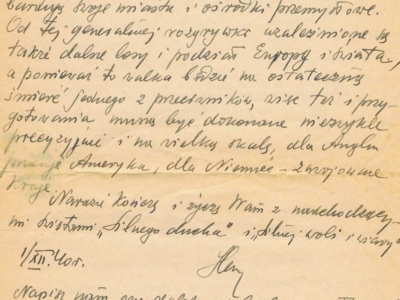 swoje miasta i ośrodki przemysłowe.
Od tej generalnej rozgrywki uzależnione są
także dalsze losy i podział Europy i świata,
a ponieważ to walka będzie na ostateczną
śmierć jednego z przeciwników, więc też i przy-
gotowania muszą być dokonane niezwykle
precyzyjnie i na wielką skalę, dla Anglii
pracuje Ameryka, dla Niemiec – zawojowane
kraje.
Narazie kończę i życzę Wam z nadchodzący-
mi świętami „silnego ducha” i „silnej woli i wiary”
1/XII. 40r.
Napisz